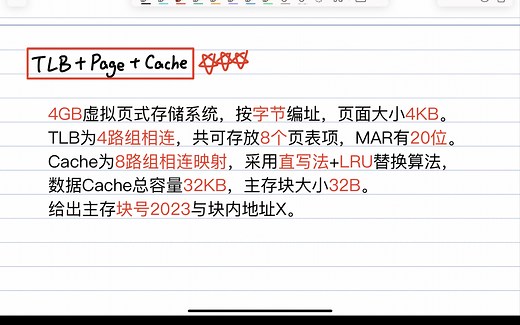 TLB+Page+Cache ☆☆☆
4GB虚拟页式存储系统，按字节编址，页面大小4KB。
TLB为4路组相连，共可存放8个页表项，MAR有20位。
Cache为8路组相连映射，采用直写法+LRU替换算法，
数据Cache总容量32KB，主存块大小32B。
给出主存块号2023与块内地址X。